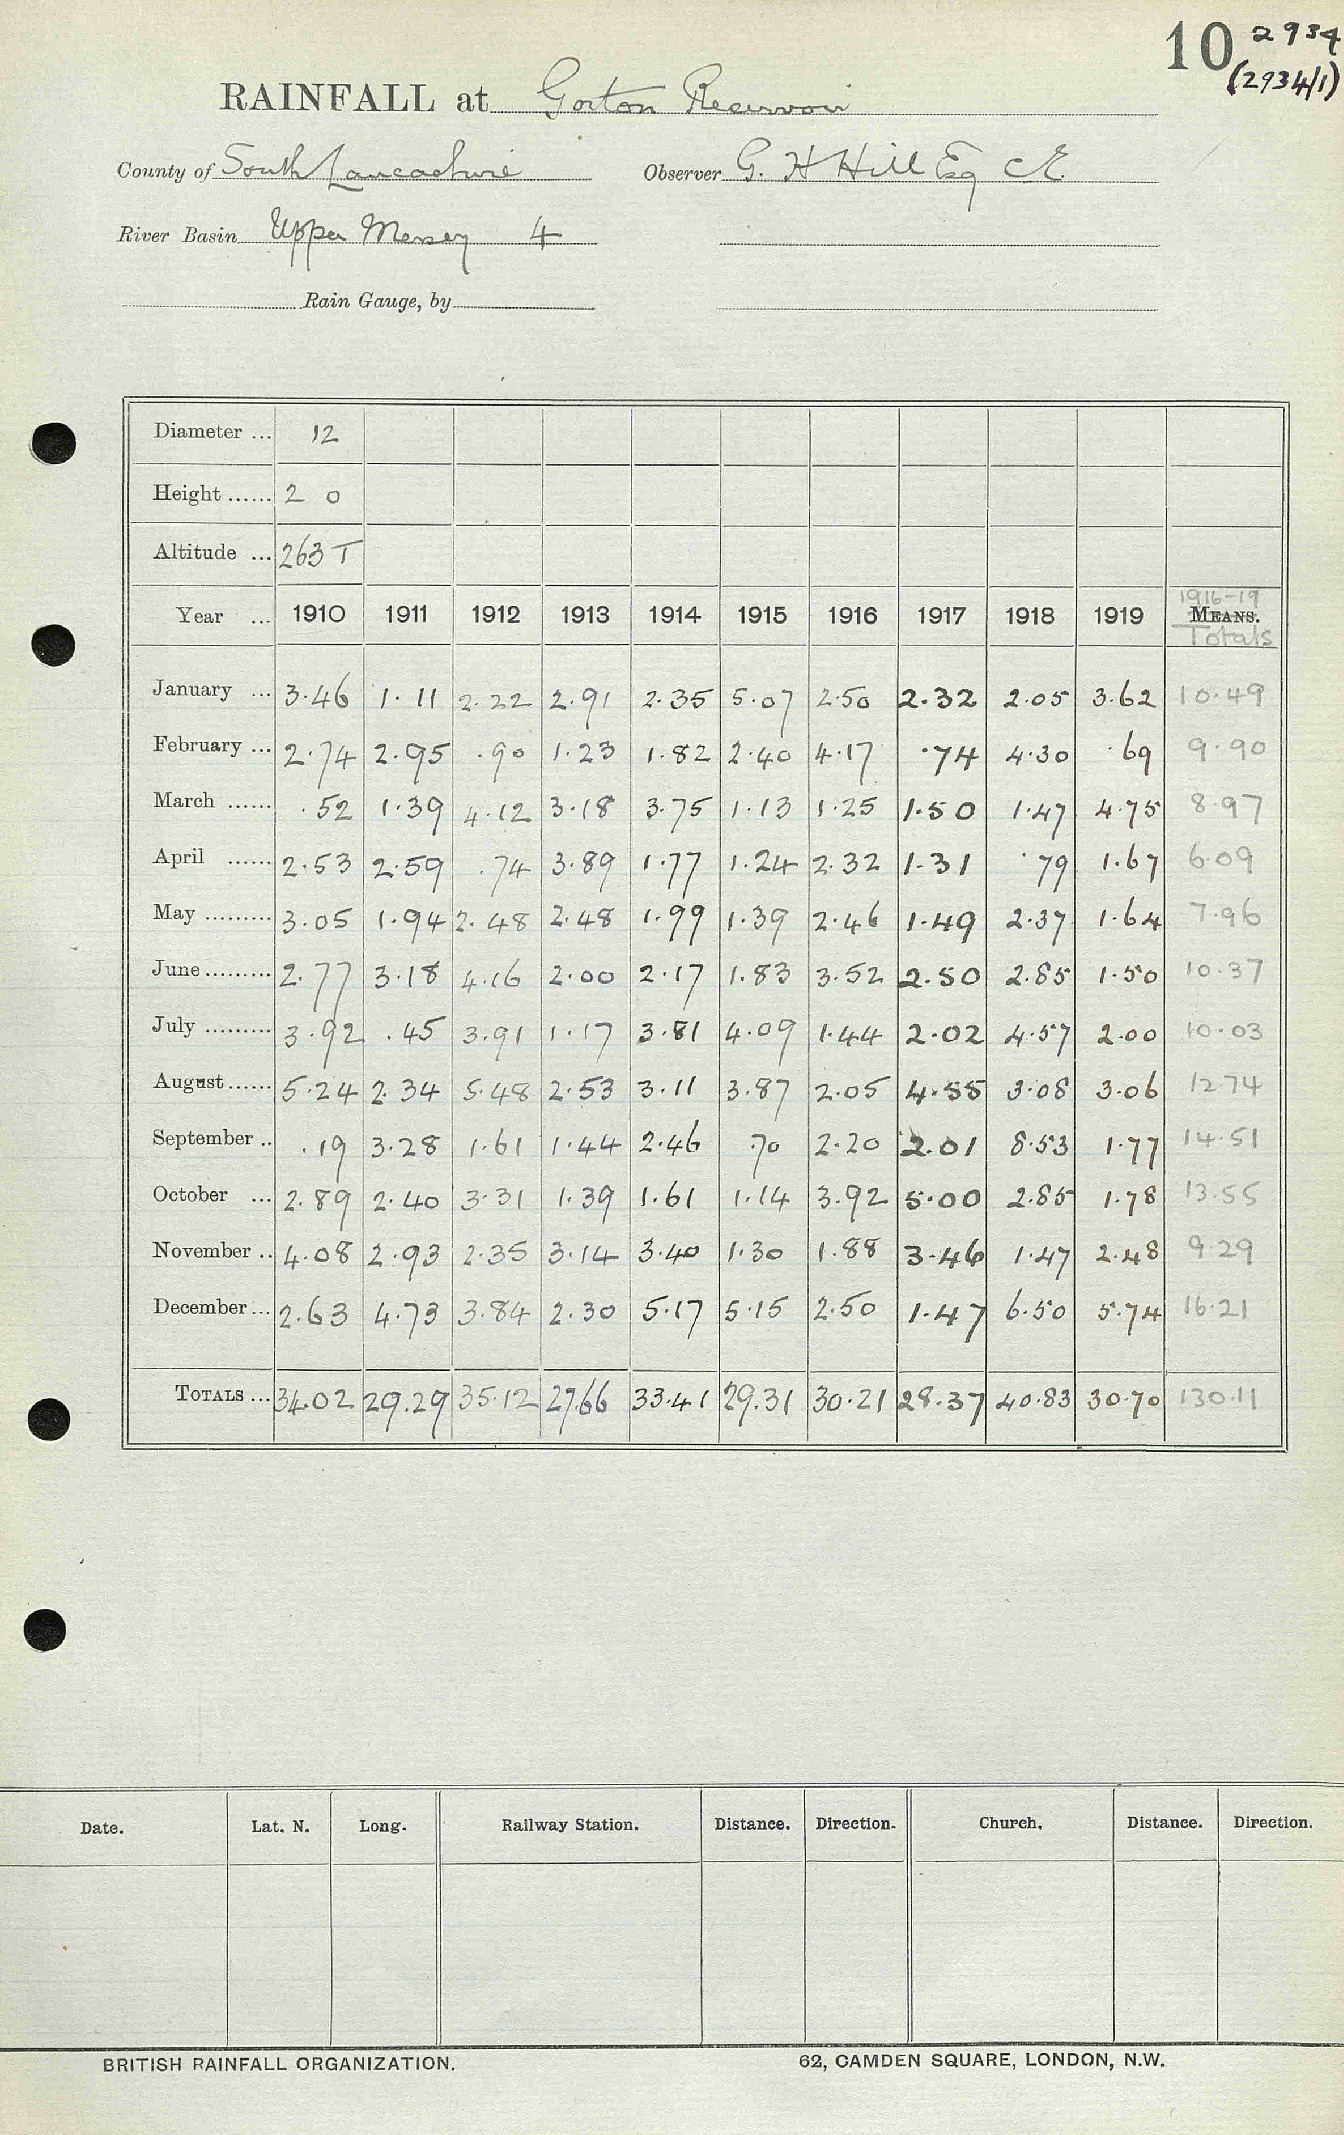 10 2934
(2934/1)
RAINFALL at Gorton Reservoir
County of South Lancashire Observer G. H Hill Esq C.E.
River Basin Upper Mersey 4
Rain Gauge, by
Diameter ... 12
Height ...... 2 0
Altitude ... 263 T
1916-19
Year ... 1910 1911 1912 1913 1914 1915 1916 1917 1918 1919 MEANS.
Totals
January ... 3.46 1.11 2.22 2.91 2.35 5.07 2.50 2.32 2.05 3.62 10.49
February ... 2.74 2.95 .90 1.23 1.82 2.40 4.17 .74 4.30 .69 9.90
March ...... .52 1.39 4.12 3.18 3.75 1.13 1.25 1.50 1.47 4.75 8.97
April ...... 2.53 2.59 .74 3.89 1.77 1.24 2.32 1.31 .79 1.67 6.09
May ......... 3.05 1.94 2.48 2.48 1.99 1.39 2.46 1.49 2.37 1.64 7.96
June ......... 2.77 3.18 4.16 2.00 2.17 1.83 3.52 2.50 2.85 1.50 10.37
July ......... 3.92 .45 3.91 1.17 3.81 4.09 1.44 2.02 4.57 2.00 10.03
August ...... 5.24 2.34 5.48 2.53 3.11 3.87 2.05 4.55 3.08 3.06 12.74
September .. .19 3.28 1.61 1.44 2.46 .70 2.20 2.01 8.53 1.77 14.51
October ... 2.89 2.40 3.31 1.39 1.61 1.14 3.92 5.00 2.85 1.78 13.55
November .. 4.08 2.93 2.35 3.14 3.40 1.30 1.88 3.46 1.47 2.48 9.29
December ... 2.63 4.73 3.84 2.30 5.17 5.15 2.50 1.47 6.50 5.74 16.21
TOTALS ... 34.02 29.29 35.12 27.66 33.41 29.31 30.21 28.37 40.83 30.70 130.11
Date. Lat. N. Long. Railway Station. Distance. Direction. Church. Distance. Direction.
BRITISH RAINFALL ORGANIZATION. 62, CAMDEN SQUARE, LONDON, N.W.